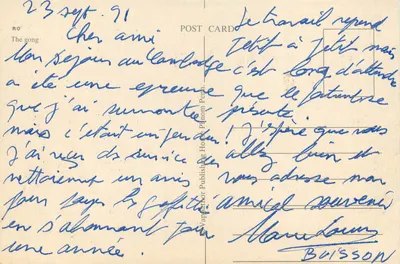 23 sept. 91
Cher ami
Mon séjour au Cambodge
a été une épreuve
que j'ai surmontée
mais c'était
j'ai reçu du service des
un avis
pour payer
en s'abonnant pour
une année.
POST CARD
The gong
Le travail reprend
petit à petit mais
c'est long d'attendre
que le
présente.
J'espère que vous
allez bien et
vous adresse mon
amical souvenir
Marie Louise
BUISSON